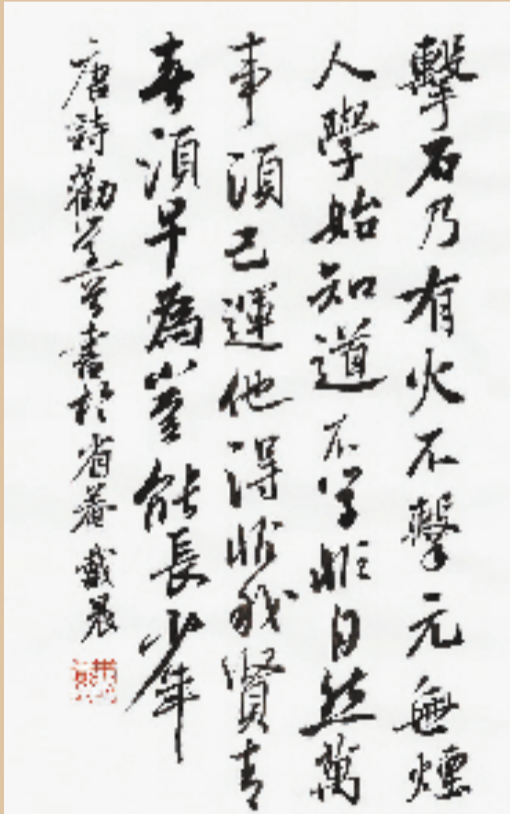 擊石乃有火不擊元無煙
人學始知道不学非自然萬
事須己運他得非我賢青
春須早為豈能長少年
唐詩勸書於省菴 戴晨